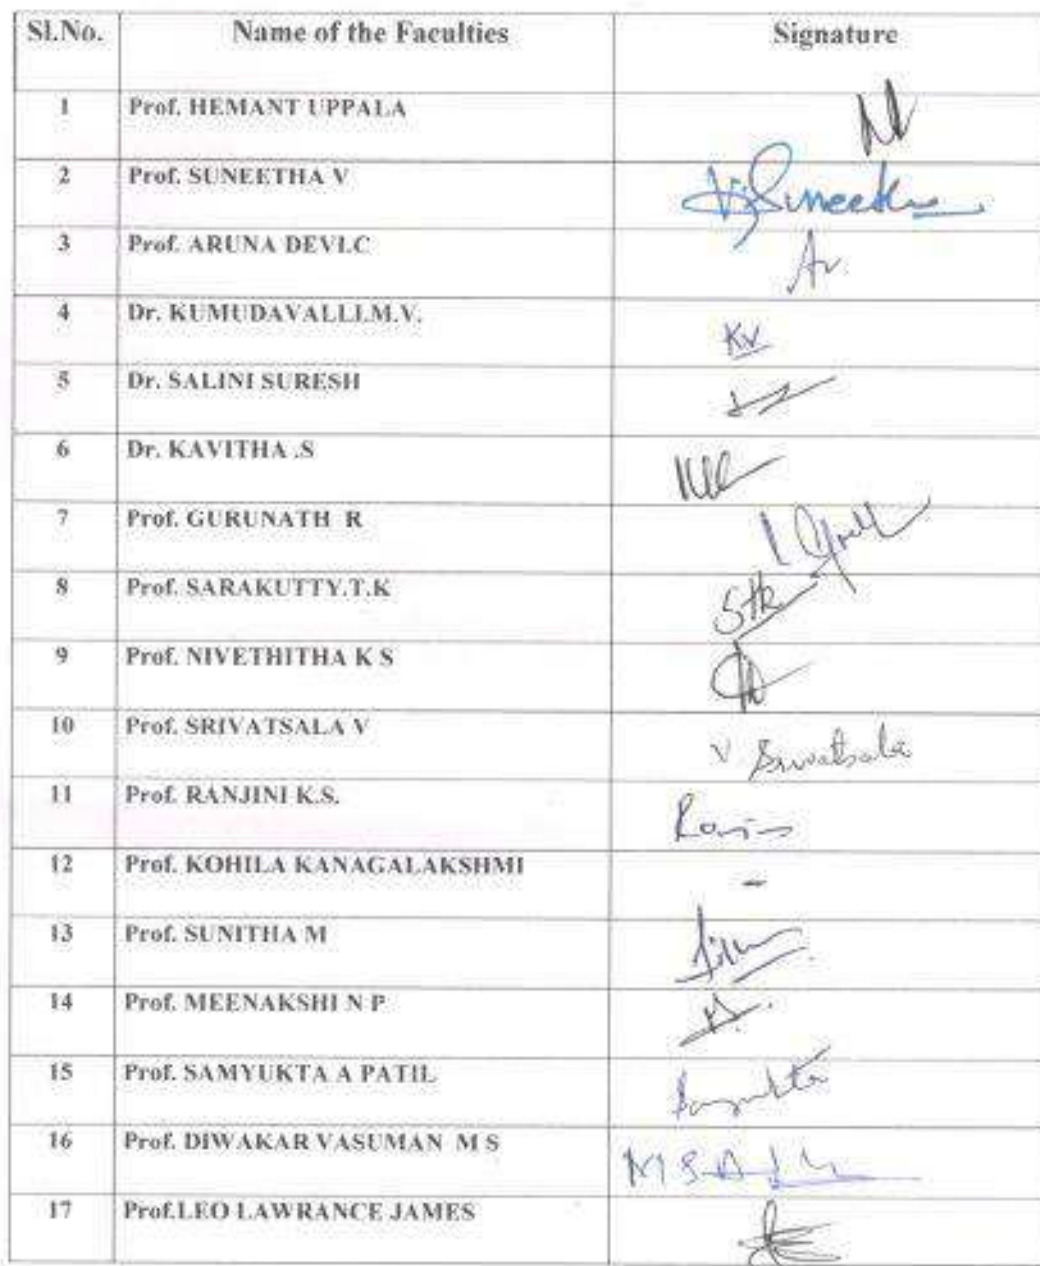 Sl.No. Name of the Faculties Signature
1 Prof. HEMANT UPPALA
2 Prof. SUNEETHA V V Suneetha
3 Prof. ARUNA DEVI.C Ar.
4 Dr. KUMUDAVALLI.M.V. KV
5 Dr. SALINI SURESH
6 Dr. KAVITHA .S
7 Prof. GURUNATH R
8 Prof. SARAKUTTY.T.K Stk
9 Prof. NIVETHITHA K S
10 Prof. SRIVATSALA V V Srivatsala
11 Prof. RANJINI K.S.
12 Prof. KOHILA KANAGALAKSHMI -
13 Prof. SUNITHA M
14 Prof. MEENAKSHI N P
15 Prof. SAMYUKTA A PATIL Samyukta
16 Prof. DIWAKAR VASUMAN M S
17 Prof.LEO LAWRANCE JAMES